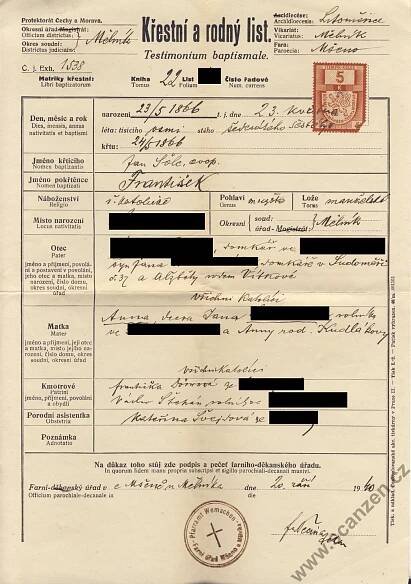 Protektorát Čechy a Morava.
Okresní úřad-Magistrát:
Officium districtus:
Okres soudní:
Districtus judicialis:
Mělník
C. j. Exh. 1538
Křestní a rodný list
Testimonium baptismale.
Arcidiecése:
Archidioecesis:
Litoměřice
Vikariát:
Vicariatus:
Mělník
Fara:
Paroecia:
Mšeno
5
K
Matriky křestní:
Libri baptizatorum
Kniha 22 List Číslo řadové
Tomus Folium Num. currens
Den, měsíc a rok
Dies, mensis, annus
nativitatis et baptismi
narození 23/5 1866 t. j. dne 23. května
léta: tisícího osmi stého šedesátého šestého
křtu: 24/5 1866
Jméno křticího
Nomen baptizantis
Jan coop.
Jméno pokřtěnce
Nomen baptizati
František
Náboženství
Religio
Pohlaví mužské
Sexus
Lože manželské
Torus
Místo narození
Locus nativitatis
Okresní soud:
úřad-Magistrát:
Mělník
Otec
Pater
jméno a příjmení, povolání
a postavení v povolání,
jeho otec a matka, místo
narození, číslo domu,
okres soudní, okresní úřad
domkář ve
syn Jana domkáře v Sudoměři
č. 37 a Alžběty
Všichni katolíci
Matka
Mater
jméno a příjmení, její otec
a matka, místo jejího na-
rození, číslo domu, okres
soudní, okresní úřad
Anna dcera Jana rolníka
ve a Anny rod. Kudláčkovy
Kmotrové
Patrini
jméno a příjmení, povolání
a obydlí
Všichni katolíci
Františka ze
Václav Štěpán rolník z
Porodní asistentka
Obstetrix
Kateřina Švejdová ze
Poznámka
Adnotatio
Na důkaz toho stůj zde podpis a pečeť farního-děkanského úřadu.
In quorum fidem manu propria subscripsi et sigillo parochiali-decanali munivi.
Farní-děkanský úřad v e Mšeně u Mělníka dne 20. září 1940
Officium parochiale-decanale in die
www.scanzen.cz